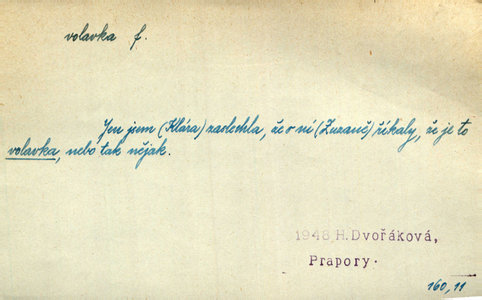 volavka f.
Jen jsem (Klára) zaslechla, že o ní (Zuzaně) říkaly, že je to
volavka, nebo tak nějak.
1948 H. Dvořáková,
Prapory.
160,11